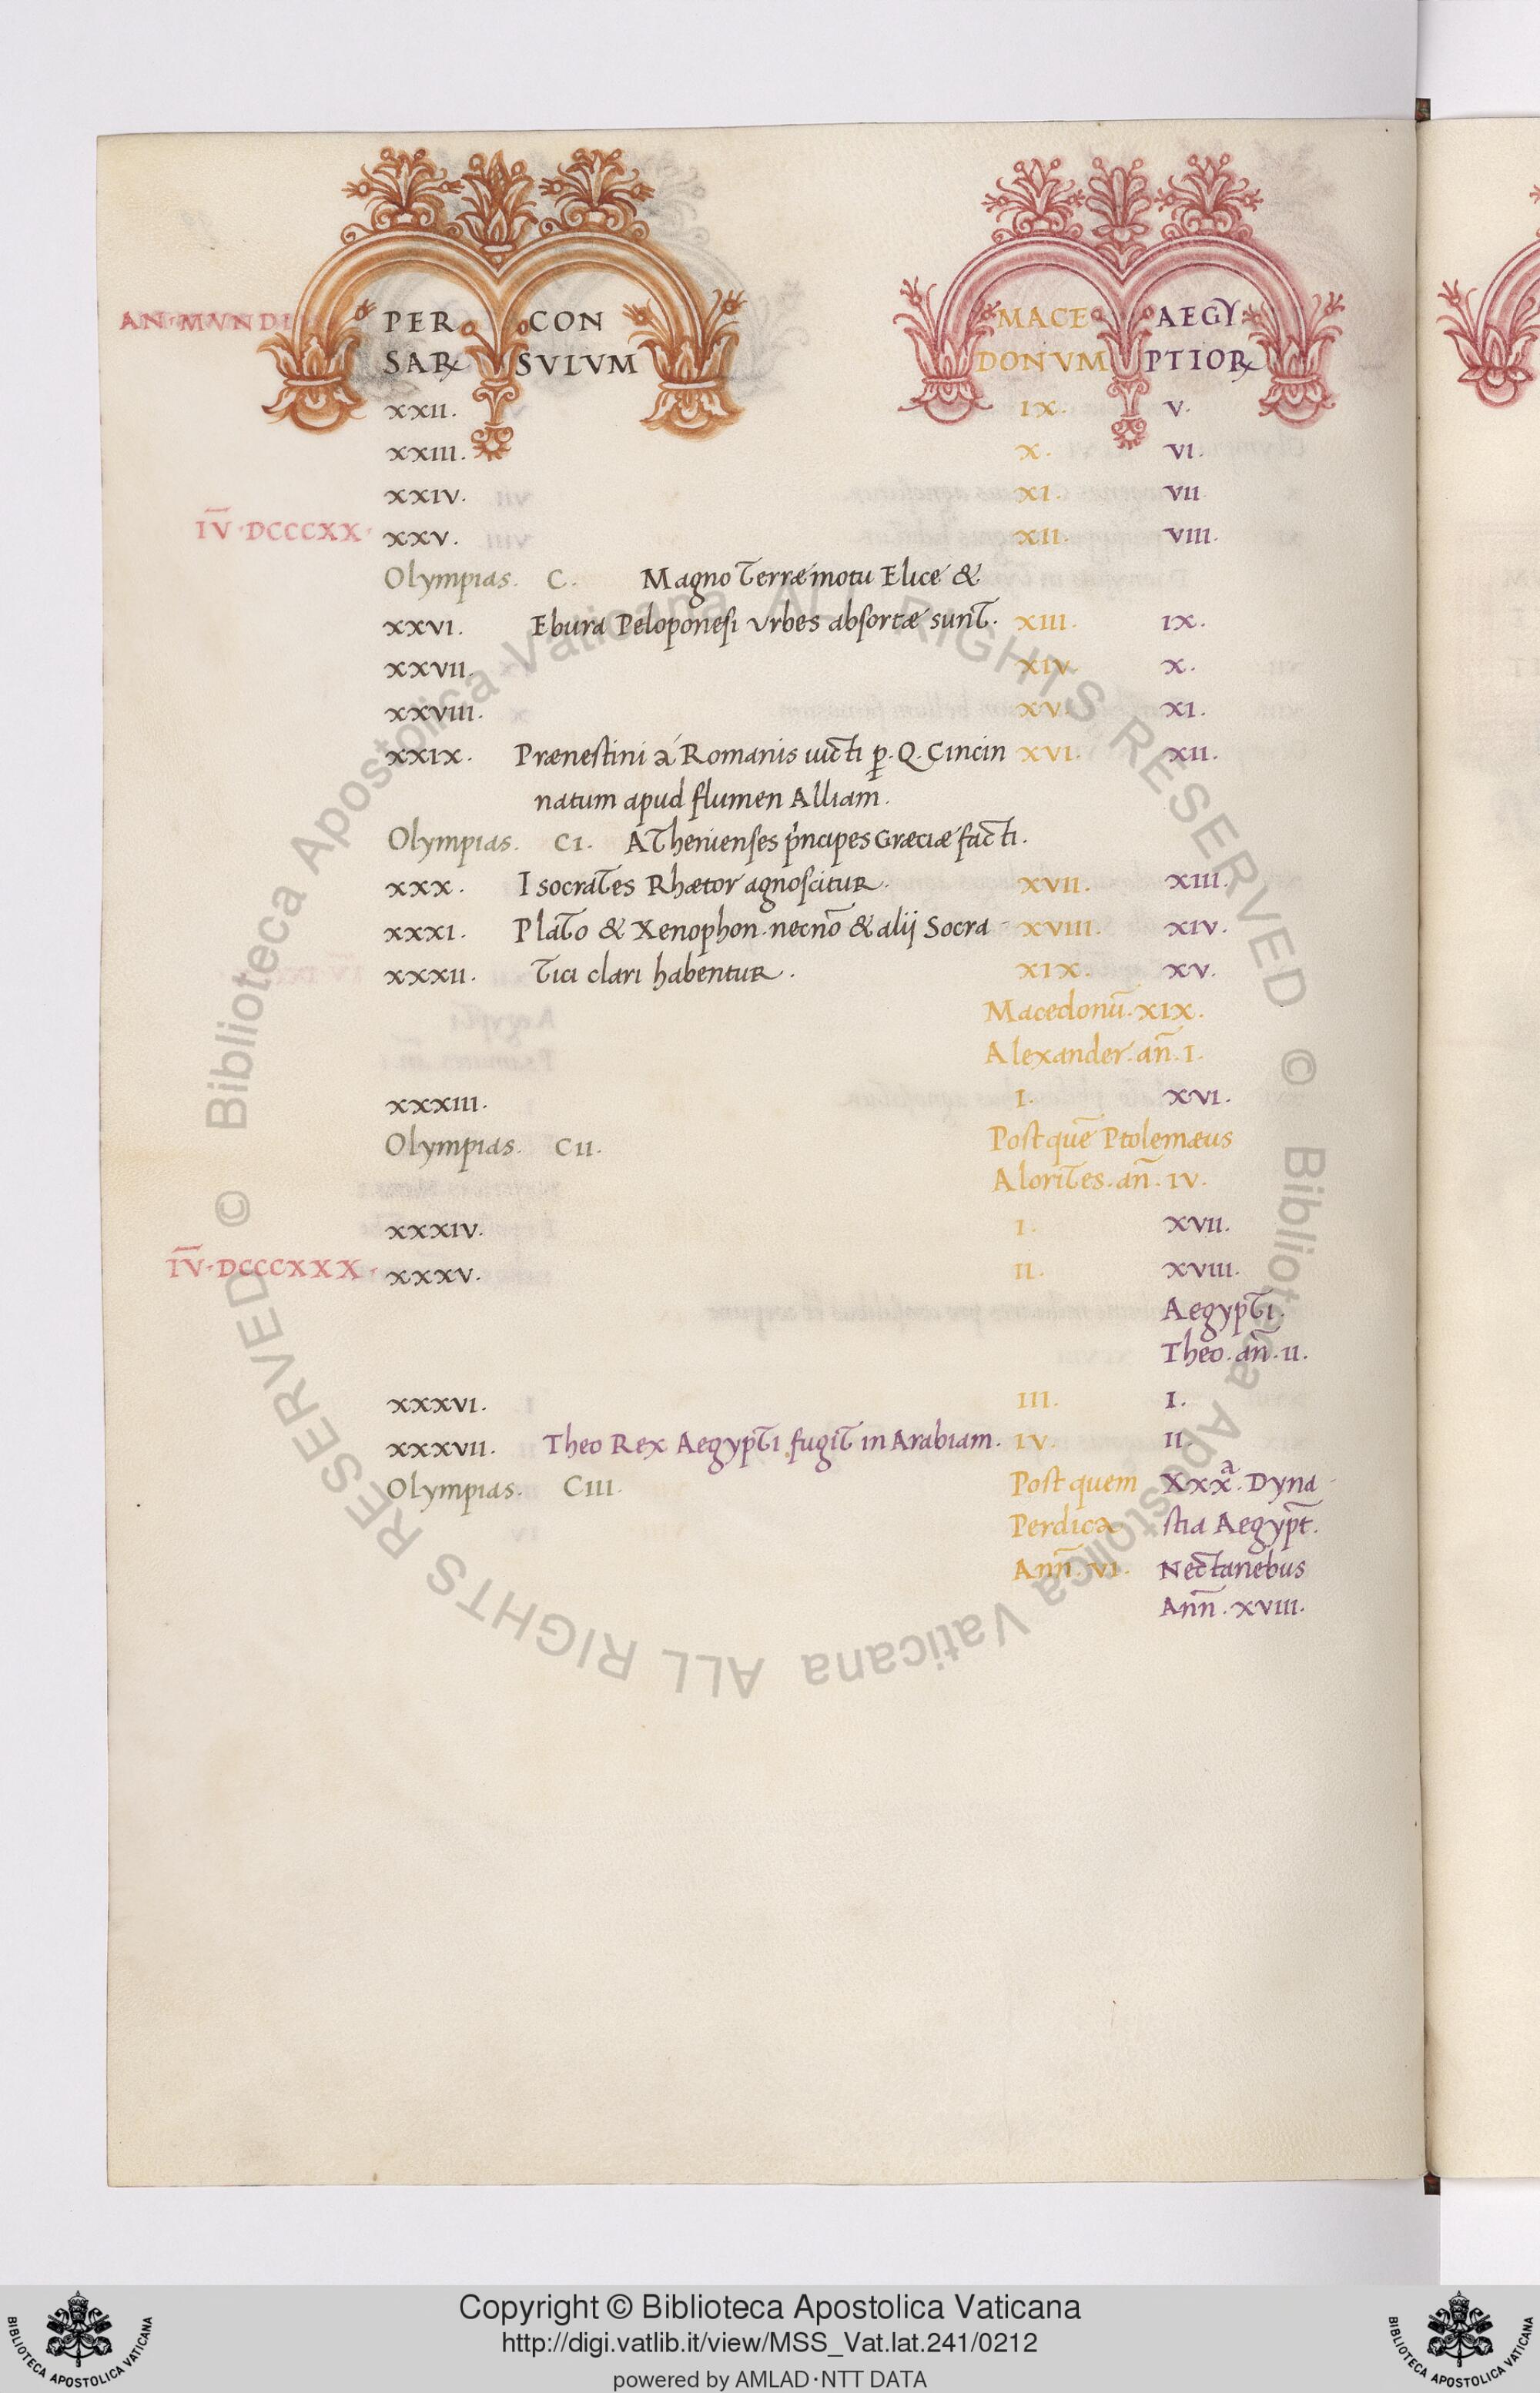 AN·MVNDI PER CON MACE AEGY
SAR℞ SVLVM DONVM PTIOR℞
XXII. IX. V.
XXIII. X. VI.
XXIV. XI. VII
I̅V̅·DCCCXX· XXV. XII. VIII.
Olympias. C. Magno Terræmotu Elice &
XXVI. Ebura Peloponesi vrbes absortæ sunt. XIII. IX.
XXVII. XIV. X.
XXVIII. XV. XI.
XXIX. Prænestini à Romanis uicti ꝑ. Q. Cincin XVI. XII.
natum apud flumen Alliam.
Olympias. CI. Athenienses pͥncipes Græciæ facti.
XXX. Isocrates Rhætor agnoscitur. XVII. XIII.
XXXI. Plato & Xenophon. necnō & alij Socra- XVIII. XIV.
XXXII. tici clari habentur. XIX. XV.
Macedonū. XIX.
Alexander. an̄. I.
XXXIII. I. XVI.
Olympias. CII. Post quē Ptolemæus
Alorites. an̄. IV.
XXXIV. I. XVII.
I̅V̅·DCCCXXX· XXXV. II. XVIII.
Aegypti.
Theo. an̄. II.
XXXVI. III. I.
XXXVII. Theo Rex Aegypti fugit in Arabiam. IV. II.
Olympias. CIII. Post quem XXXᵃ. Dyna-
Perdica stia Aegypt̄.
Ann̄. VI. Nectanebus
Ann̄. XVIII.
© Biblioteca Apostolica Vaticana ALL RIGHTS RESERVED
© Biblioteca Apostolica Vaticana ALL RIGHTS RESERVED
Copyright © Biblioteca Apostolica Vaticana
http://digi.vatlib.it/view/MSS_Vat.lat.241/0212
powered by AMLAD·NTT DATA
BIBLIOTECA APOSTOLICA VATICANA
BIBLIOTECA APOSTOLICA VATICANA